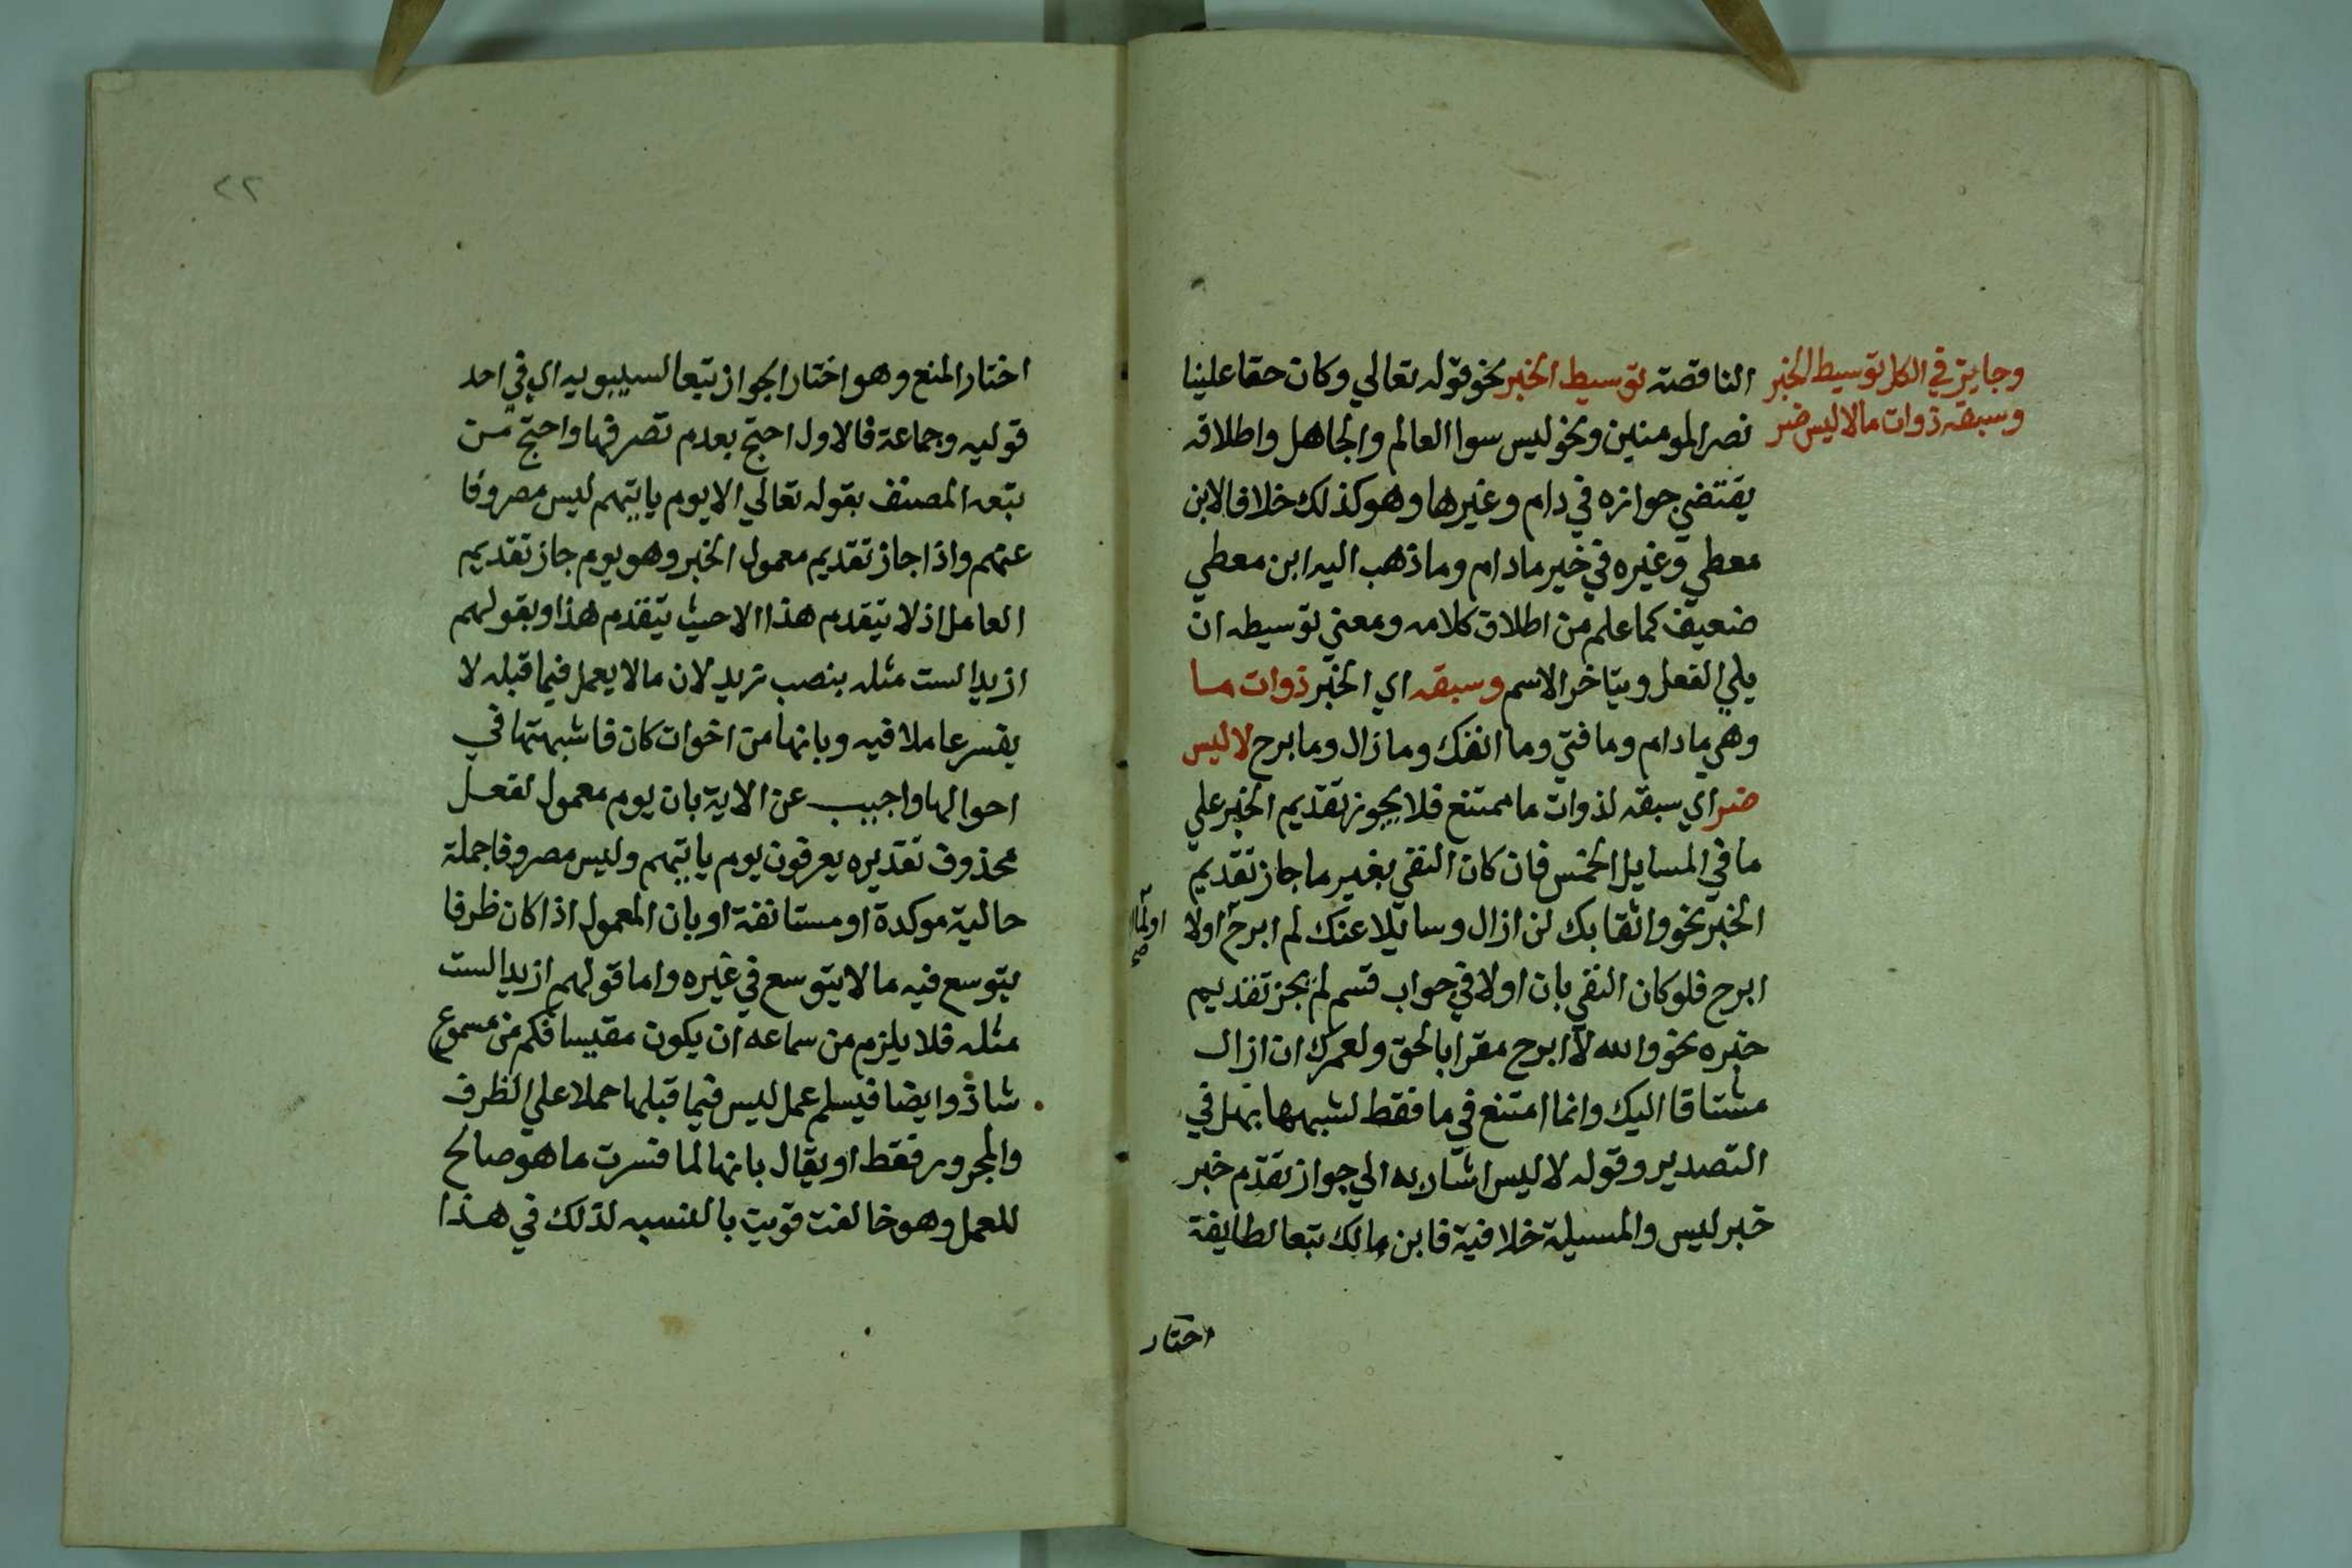 وجايز في الكل توسيط الخبر
وسبقه ذوات ما لا ليس ضر
الناقصة توسيط الخبر نحو قوله تعالي وكان حقا علينا
نصر المومنين ونحو ليس سوا العالم والجاهل واطلاقه
يقتضي جوازه في دام وغيرها وهو كذلك خلافا لابن
معطي وغيره في خبر مادام وما ذهب اليه ابن معطي
ضعيف كما علم من اطلاق كلامه ومعني توسيطه ان
يلي الفعل ويتاخر الاسم وسبقه اي الخبر ذوات ما
وهي مادام وما فتي وما انفك وما زال وما برح لا ليس
ضر اي سبقه لذوات ما ممتنع فلا يجوز تقديم الخبر علي
ما في المسايل الخمس فان كان النفي بغير ما جاز تقديم
الخبر نحو واثقا بك لن ازال وسايلا عنك لم ابرح اولا
ابرح فلو كان النفي بان اولا في جواب قسم لم يجز تقديم
خبره نحو والله لا ابرح مقرا بالحق ولعمرك ان ازال
مشتاقا اليك وانما امتنع في ما فقط لشبهها بهل في
التصدير وقوله لا ليس اشار به الي جواز تقدم خبر
خبر ليس والمسيلة خلافية فابن مالك تبعا لطايفة
اختار
٤٢
اختار المنع وهو اختار الجواز تبعا لسيبويه اي في احد
قوليه وجماعة فالاول احتج بعدم تصرفها واحتج من
تبعه المصنف بقوله تعالي الا يوم ياتيهم ليس مصروفا
عنهم واذا جاز تقديم معمول الخبر وهو يوم جاز تقديم
العامل اذ لا يتقدم هذا الا حيث يتقدم هذا وبقولهم
ازيدا لست مثله بنصب زيد لان ما لا يعمل فيما قبله لا
يفسر عاملا فيه وبانها من اخوات كان فاشبهتها في
احوالها واجيب عن الاية بان يوم معمول لفعل
محذوف تقديره يعرفون يوم ياتيهم وليس مصروفا جملة
حالية موكدة او مستانفة او بان المعمول اذا كان ظرفا
يتوسع فيه ما لا يتوسع في غيره واما قولهم ازيدا لست
مثله فلا يلزم من سماعه ان يكون مقيسا فكم من مسموع
شاذ وايضا فيسلم عمل ليس فيما قبلها حملا علي الظرف
والمجرور فقط او يقال بانها لما فسرت ما هو صالح
للعمل وهو خالفت قويت بالنسبه لذلك في هذا